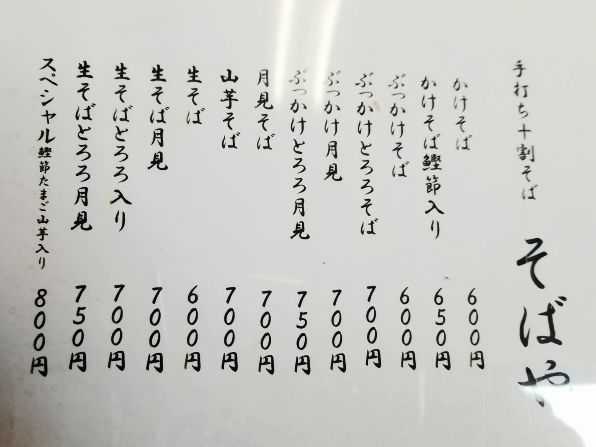 手打ち十割そば そばや
かけそば 600円
かけそば鰹節入り 650円
ぶっかけそば 600円
ぶっかけとろろそば 700円
ぶっかけ月見 700円
ぶっかけとろろ月見 750円
月見そば 700円
山芋そば 700円
生そば 600円
生そば月見 700円
生そばとろろ入り 700円
生そばとろろ月見 750円
スペシャル鰹節たまご山芋入り 800円